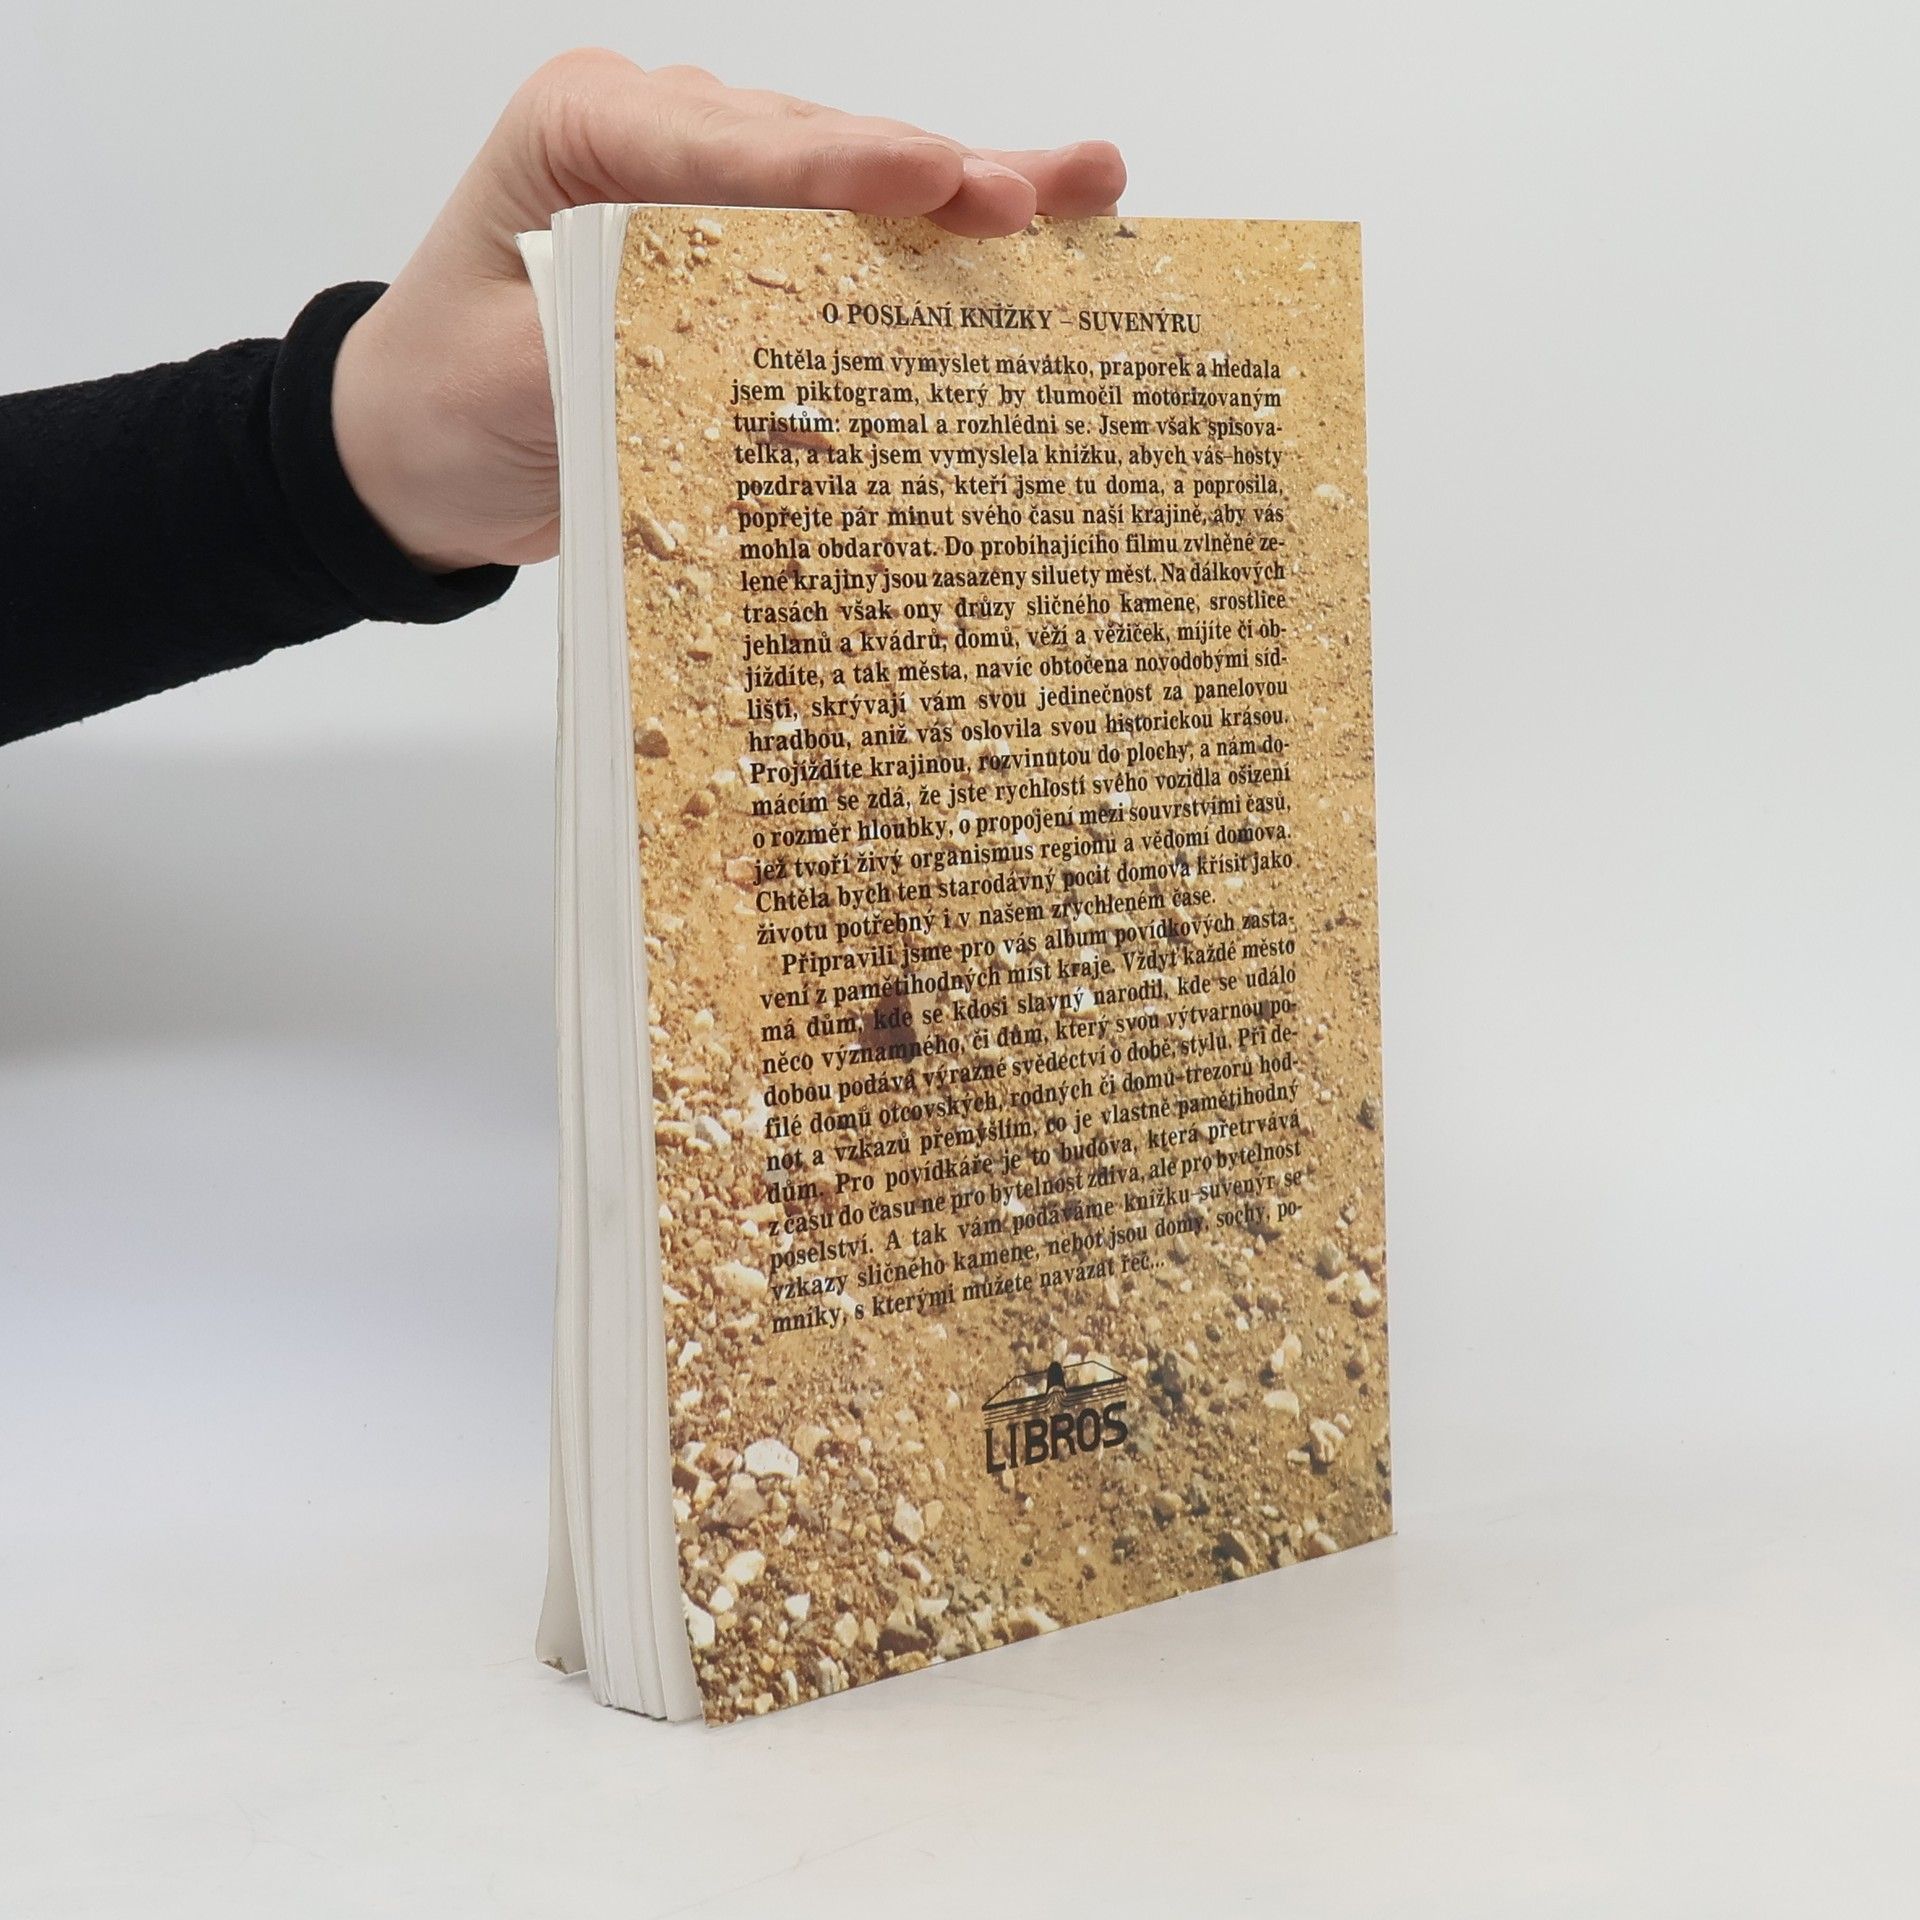 O POSLÁNÍ KNÍŽKY – SUVENÝRU
Chtěla jsem vymyslet mávátko, praporek a hledala
jsem piktogram, který by tlumočil motorizovaným
turistům: zpomal a rozhlédni se. Jsem však spisova-
telka, a tak jsem vymyslela knížku, abych vás-hosty
pozdravila za nás, kteří jsme tu doma, a poprosila,
popřejte pár minut svého času naší krajině, aby vás
mohla obdarovat. Do probíhajícího filmu zvlněné ze-
lené krajiny jsou zasazeny siluety měst. Na dálkových
trasách však ony drůzy sličného kamene, srostlice
jehlanů a kvádrů, domů, věží a věžiček, míjíte či ob-
jíždíte, a tak města, navíc obtočena novodobými síd-
lišti, skrývají vám svou jedinečnost za panelovou
hradbou, aniž vás oslovila svou historickou krásou.
Projíždíte krajinou, rozvinutou do plochy, a nám do-
mácím se zdá, že jste rychlostí svého vozidla ošizení
o rozměr hloubky, o propojení mezi souvrstvími časů,
jež tvoří živý organismus regionu a vědomí domova.
Chtěla bych ten starodávný pocit domova křísit jako
životu potřebný i v našem zrychleném čase.
Připravili jsme pro vás album povídkových zasta-
vení z pamětihodných míst kraje. Vždyť každé město
má dům, kde se kdosi slavný narodil, kde se událo
něco významného, či dům, který svou výtvarnou po-
dobou podává výrazné svědectví o době, stylu. Při de-
filé domů otcovských, rodných či domů-trezorů hod-
not a vzkazů přemýšlím, co je vlastně pamětihodný
dům. Pro povídkáře je to budova, která přetrvává
z času do času ne pro bytelnost zdiva, ale pro bytelnost
poselství. A tak vám podáváme knížku-suvenýr se
vzkazy sličného kamene, neboť jsou domy, sochy, po-
mníky, s kterými můžete navázat řeč...
LIBROS